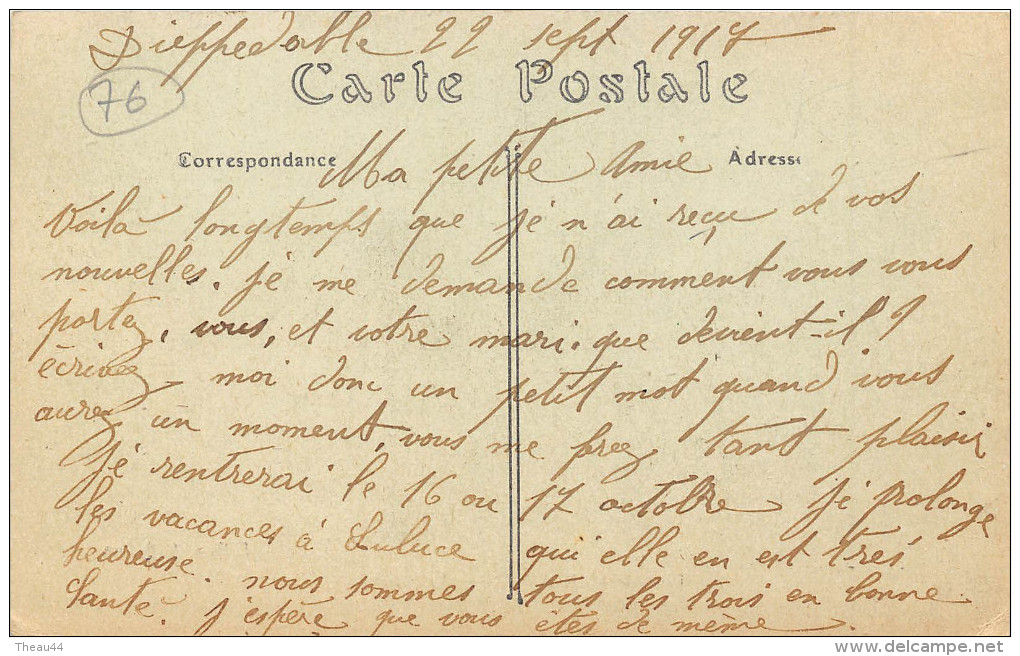 Dieppedalle 22 sept 1917
76
Carte Postale
Correspondance
Adresse
Ma petite Amie
Voilà longtemps que je n'ai reçu de vos
nouvelles. je me demande comment vous vous
portez, vous, et votre mari. que devient-il?
écrivez moi donc un petit mot quand vous
aurez un moment, vous me frez tant plaisir
je rentrerai le 16 ou 17 octobre je prolonge
les vacances à Luluce qui elle en est très
heureuse. nous sommes tous les trois en bonne
santé. j'espère que vous êtes de même.
Theau44
www.delcampe.net